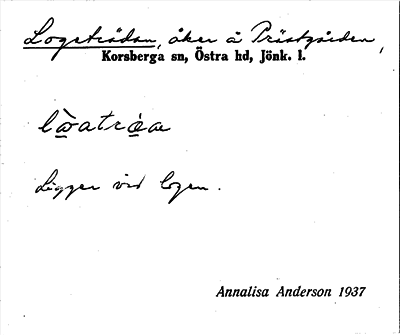 Logaträdan, åker å Prästgården,
Korsberga sn, Östra hd, Jönk. l.
Ligger vid logen.
Annalisa Anderson 1937